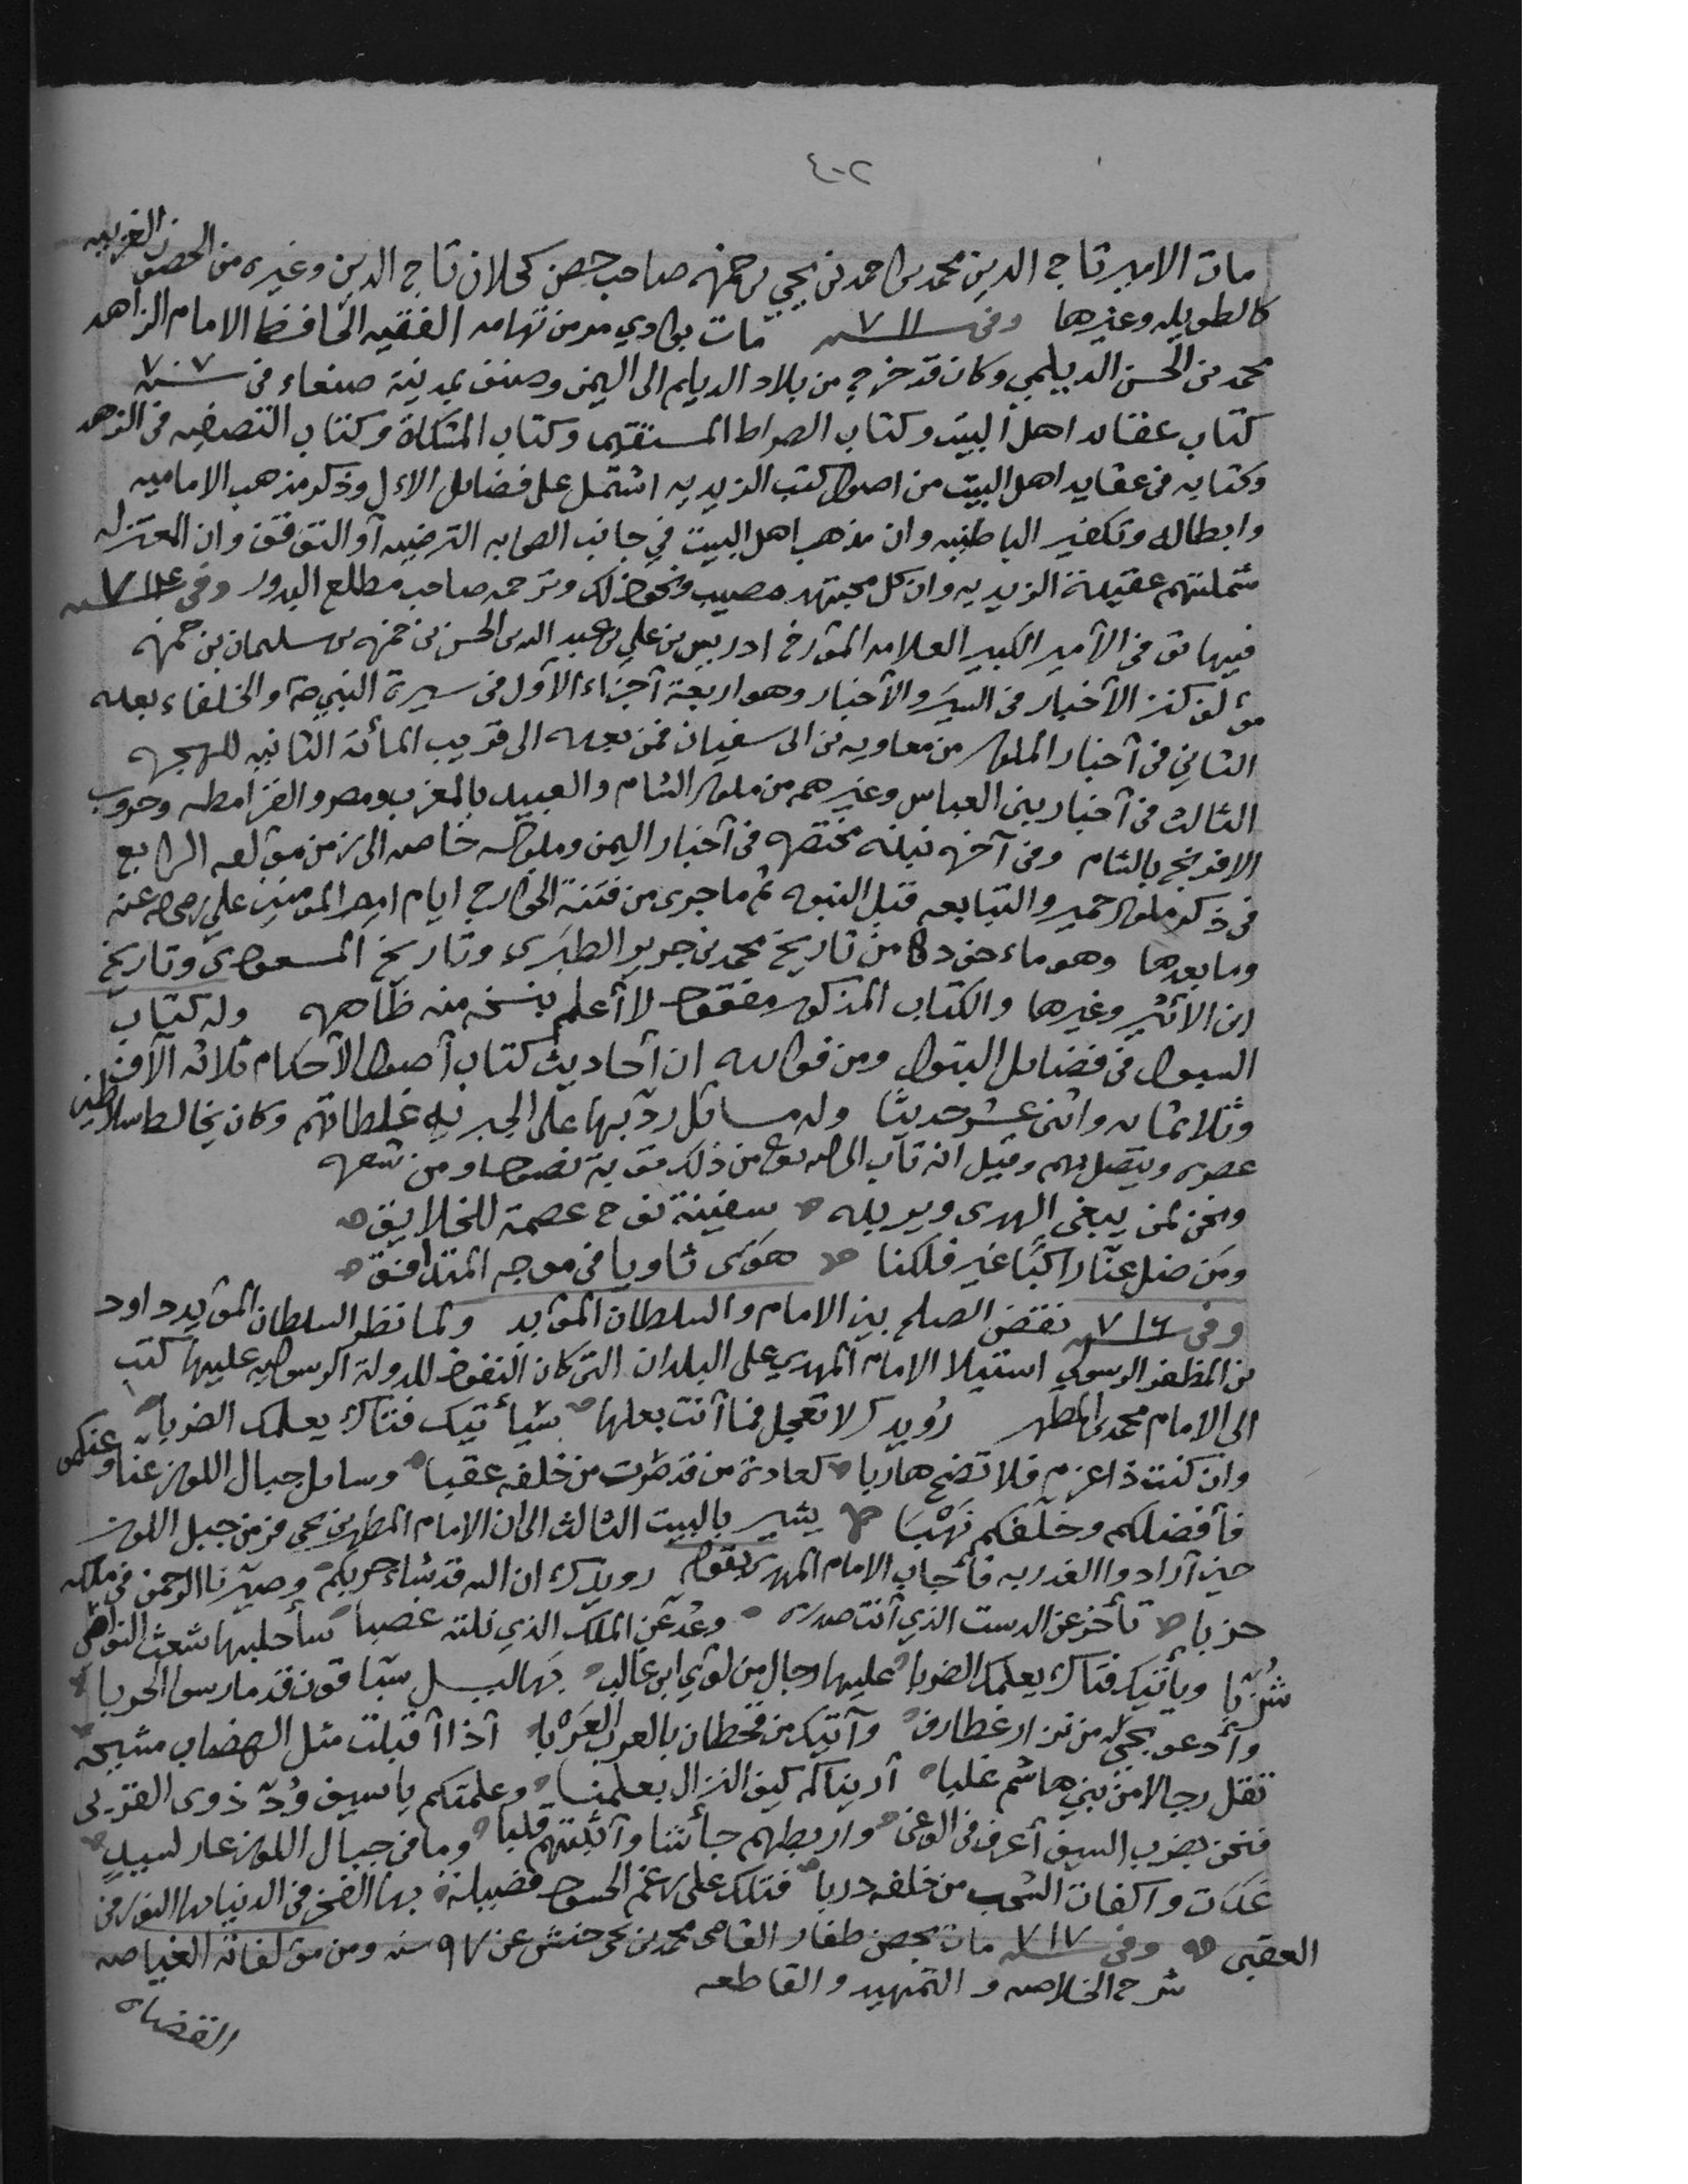 ٤٠٢
مات الامير تاج الدين محمد بن احمد بن يحيى بن حمزه صاحب حصن كحلان تاج الدين وغيره من الحصون الغربيه
كالطويله وغيرها وفى سنه ٧١١ مات بوادي مر من تهامه الفقيه الحافظ الامام الزاهد
محمد بن الحسن الديلمي وكان قد خرج من بلاد الديلم الى اليمن وصنف بمدينة صنعاء فى سنه ٧٠٧
كتاب عقائد اهل البيت وكتاب الصراط المستقيم وكتاب المشكاة وكتاب التصفيه فى الزهد
وكتابه فى عقايد اهل البيت من اصول كتب الزيديه اشتمل على فضائل الال وذكر مذهب الاماميه
وابطاله وتكفير الباطنيه وان مذهب اهل البيت في جانب الصحابه الترضيه أو التوقف وان المعتزله
شملتهم عقيدة الزيديه وان كل مجتهد مصيب ونحو ذلك وترجمه صاحب مطلع البدور وفى سنه ٧١٤
فيها توفى الأمير الكبير العلامه المؤرخ ادريس بن علي بن عبد الله بن الحسن بن حمزه بن سليمان بن حمزه
مؤلف كنز الأخبار فى السِيَر والأخبار وهو اربعة أجزاء الأول فى سيرة النبي ص والخلفاء بعده
الثاني فى أخبار الملوك من معاويه بن ابى سفيان فمن بعده الى قريب المائة الثانيه للهجره
الثالث فى أخبار بنى العباس وغيرهم من ملوك الشام والعبيد بالمغرب ومصر والقرامطه وحروب
الافرنج بالشام وفى آخره نبذه مختصره فى أخبار اليمن وملوكه خاصه الى زمن مؤلفه الرابع
فى ذكر ملوك حمير والتبابعه قبل النبوه ثم ما جرى من فتنة الخوارج ايام امير المومنين علي رضى الله عنه
وما بعدها وهو مأخوذ من تاريخ محمد بن جرير الطبَرى وتاريخ المسعودى وتاريخ
ابن الأثير وغيرها والكتاب المذكور مفقود لا أعلم بنسخه منه ظاهره وله كتاب
السول فى فضائل البتول ومن قوله ان أحاديث كتاب أصول الأحكام ثلاثه الآف
وثلاثمائه واثنى عشر حديثا وله مسائل ردّ بها على الجبريه غلطاتهم وكان يخالط سلاطين
عصره ويتصل بهم وقيل انه تاب الى الله تعالى من ذلك توبة نصوحا ومن شعره
ونحن لمن يبغى الهدى ويريده ه سفينة نوح عصمة للخلايق ه
ومَن ضل عنّا راكبًا غير فلكنا ه هوَى ثاويا فى موجه المتدافق ه
وفى سنه ٧١٦ نقض الصلح بين الامام والسلطان المؤيد ولما نظر السلطان المؤيد داود
بن المظفر الرسولي استيلا الامام المهدي على البلدان التى كان النفوذ للدولة الرسوليه عليها كتب
الى الامام محمد بن المطهر رُويدك لا تعجل فما أنت بعلها ه سيأتيك فتاك يعلمك الضربا ه
وان كنت ذا عزم فلا تضح هاربا ه كعادة من قد طرت من خلفه عقبا ه وسايل جبال اللوز عنّا وعنكمُ
فأفضلكم وخلّفكم نَهْبَا ه يشير بالبيت الثالث الى ان الامام المطهر بن يحى فر من جبل اللوز
حين أرادوا الغدر به فأجاب الامام المهدى بقوله رويدك ان الله قد شاء حربكم ه وصيّرنا الرحمن فى ملكه
حزبا ه تأخر عن الدست الذي أنت صدره ه وعُد عن الملك الذي نلته غصبا ه سأجلبها شعث النواصى
شُزّبًا ويأتيك فتاك يعلمك الضربا ه عليها رجال من لؤي ابن غالب ه بهاليـــل سبّاقون قد مارسوا الحربا ه
وأدعو بحيّ من نزار غطارف ه وآتيك من قحطان بالعرب العَرْبا ه اذا أقبلت مثل الهضاب مشيحة ه
تقل رجالا من بني هاشم غلبا ه أريناكم كيف النزال بعلمنا ه وعلمتكم يا سيف وُدّ ذوى القربى
فنحن بضرب السيف أعرف فى الوغى ه واربطهم جأشا وأثبتهم قلبا ه وما فى جبال اللوز عار لسيدٍ ه
غدَت واكفات السُحب من خلفه دربا ه فتلك على رغم الحسود فضيلة ه بها الفخر فى الدنيا بها الفوز فى
العقبى ه وفى سنه ٧١٧ مات بحصن ظفار القاضى محمد بن يحى حنش عن ٩٧ سنه ومن مؤلفاته الغياصه
شرح الخلاصه و التمهيد و القاطعه
القضاه